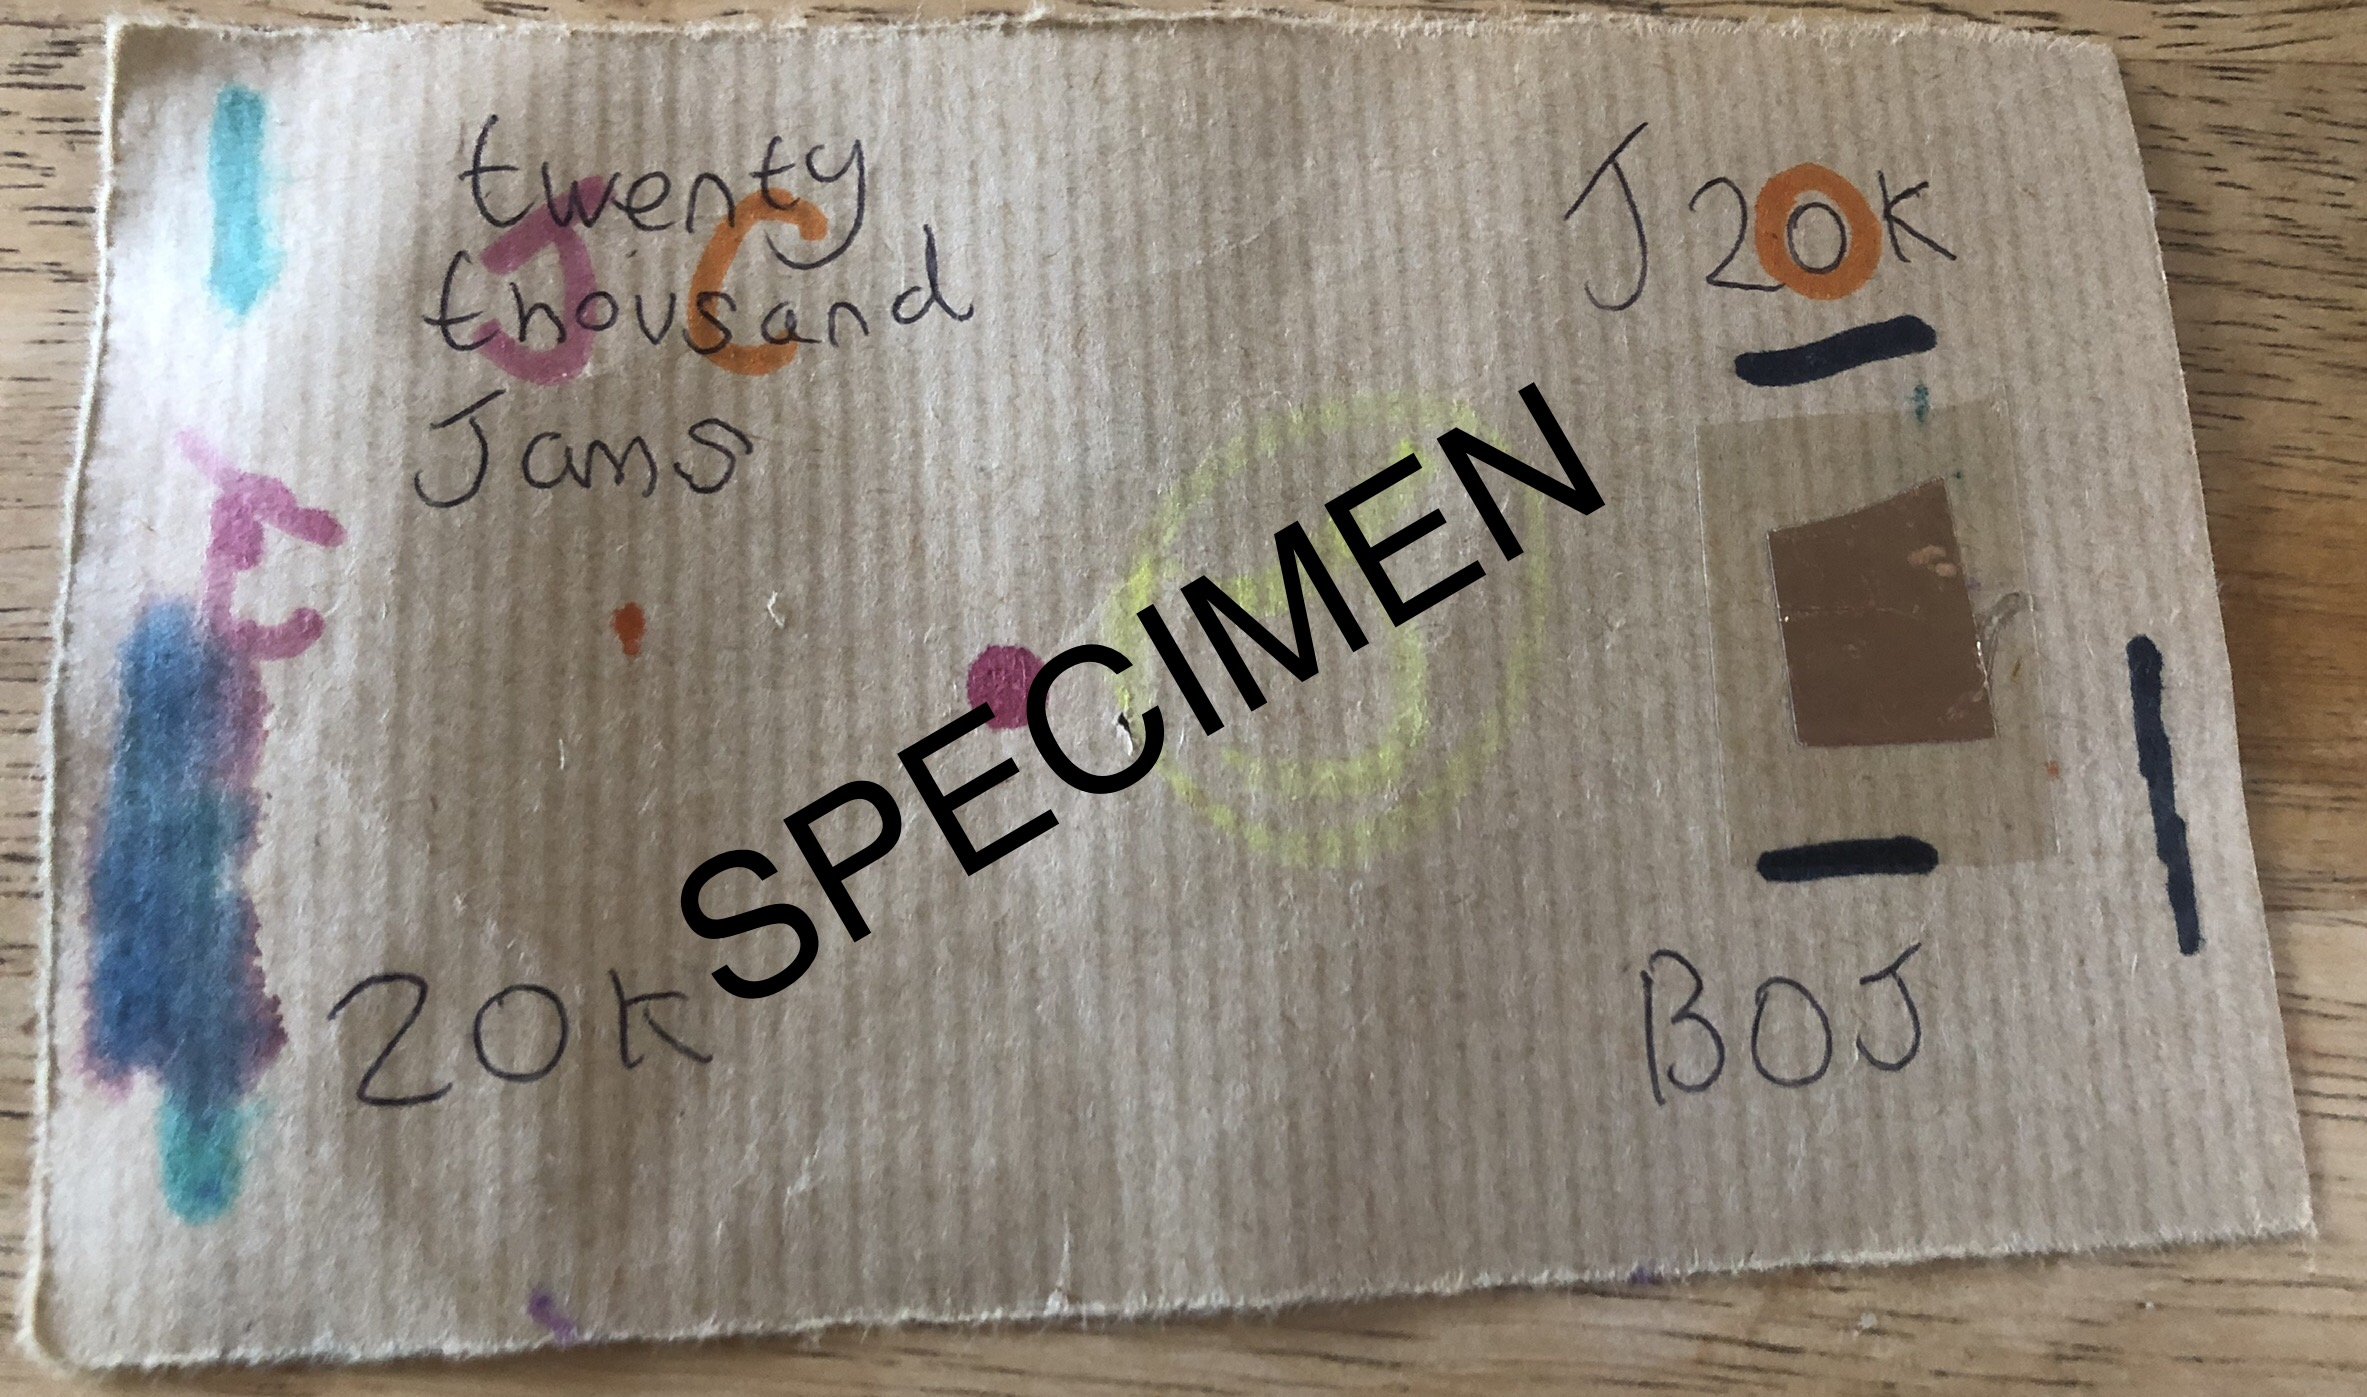 twenty
thousand
Jams
JC
J20K
SPECIMEN
20K
BOJ